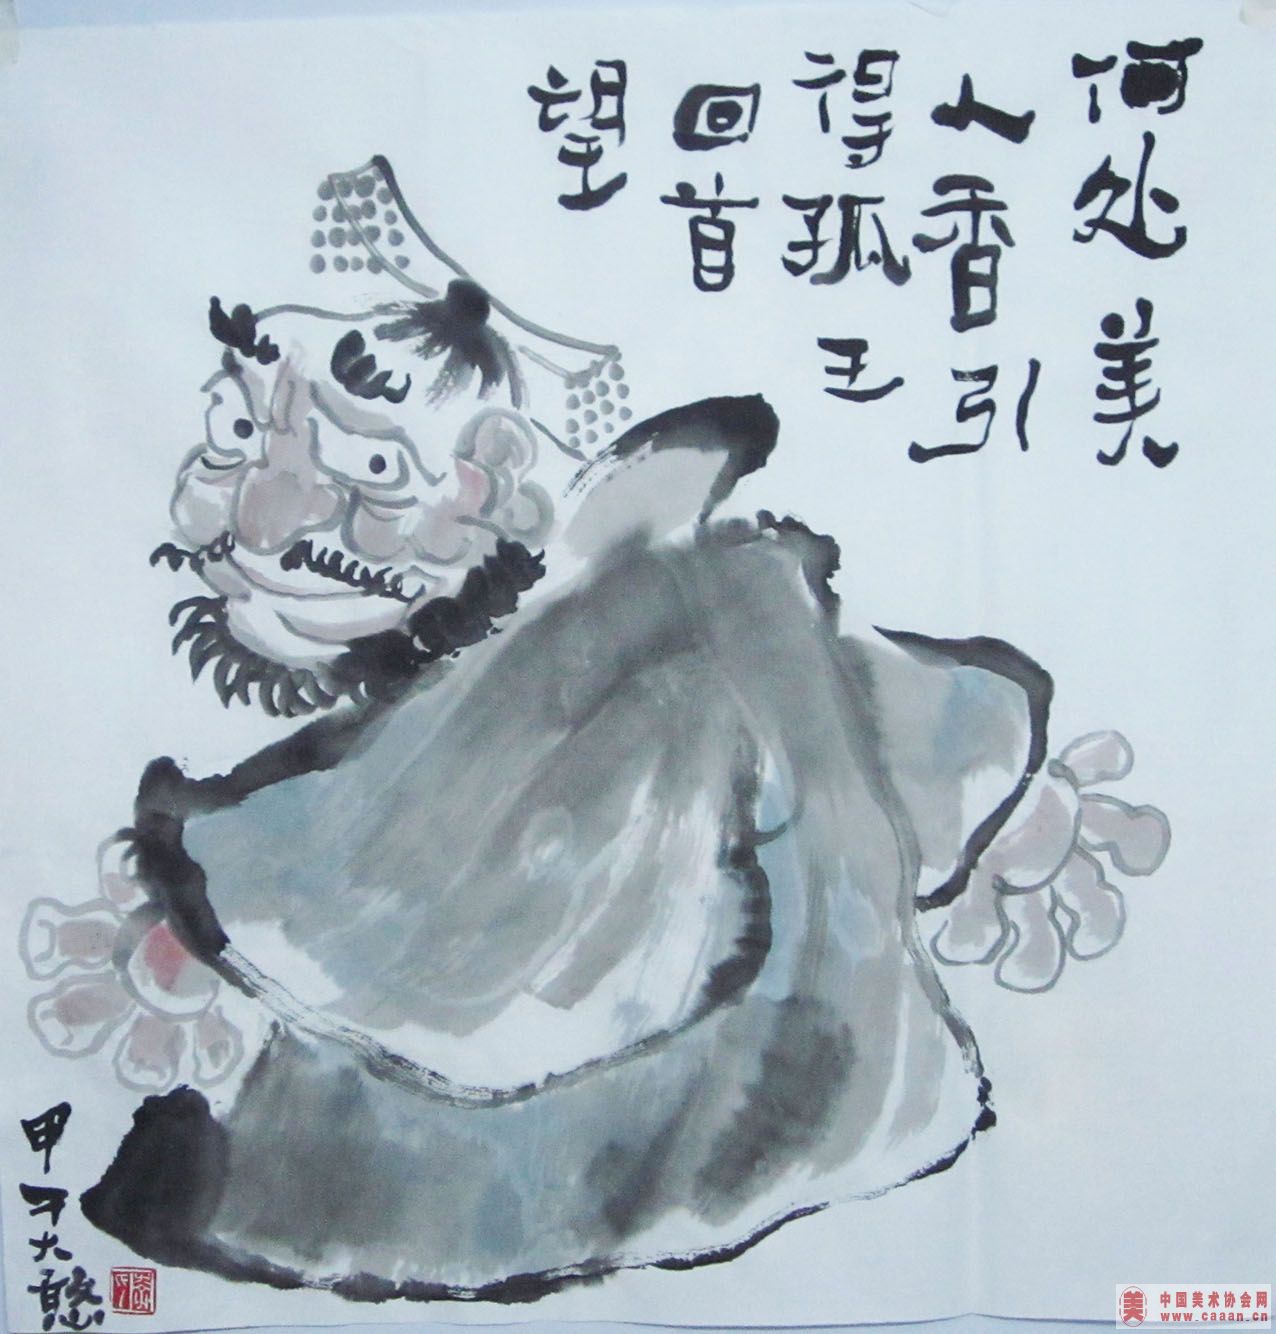 何处美
人香引
得孤王
回首
望
甲子大憨
中国美术协会网
www.caaan.cn